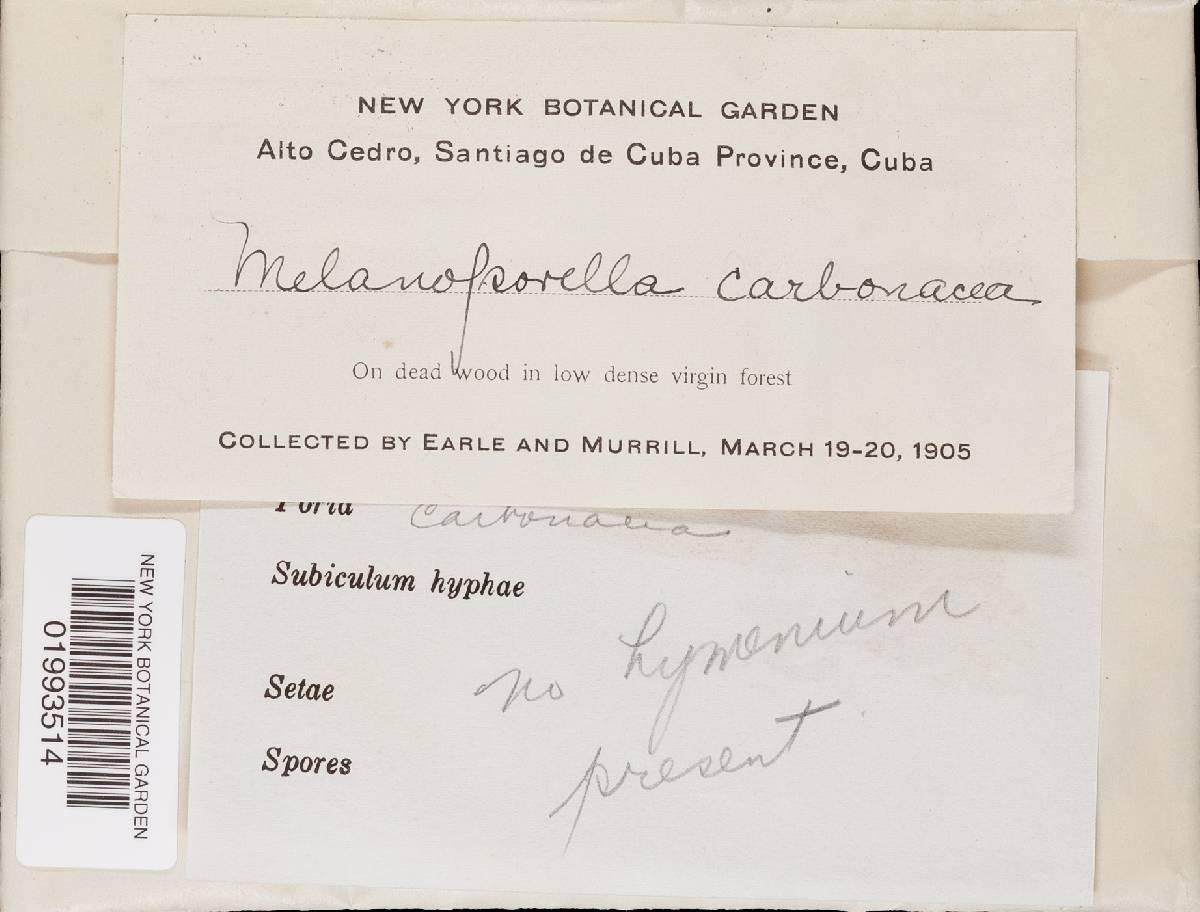 NEW YORK BOTANICAL GARDEN
Alto Cedro, Santiago de Cuba Province, Cuba
Melanoporella carbonacea
On dead wood in low dense virgin forest
COLLECTED BY EARLE AND MURRILL, MARCH 19-20, 1905
Poria carbonacea
Subiculum hyphae
Setae
Spores
no hymenium
present
NEW YORK BOTANICAL GARDEN
01993514